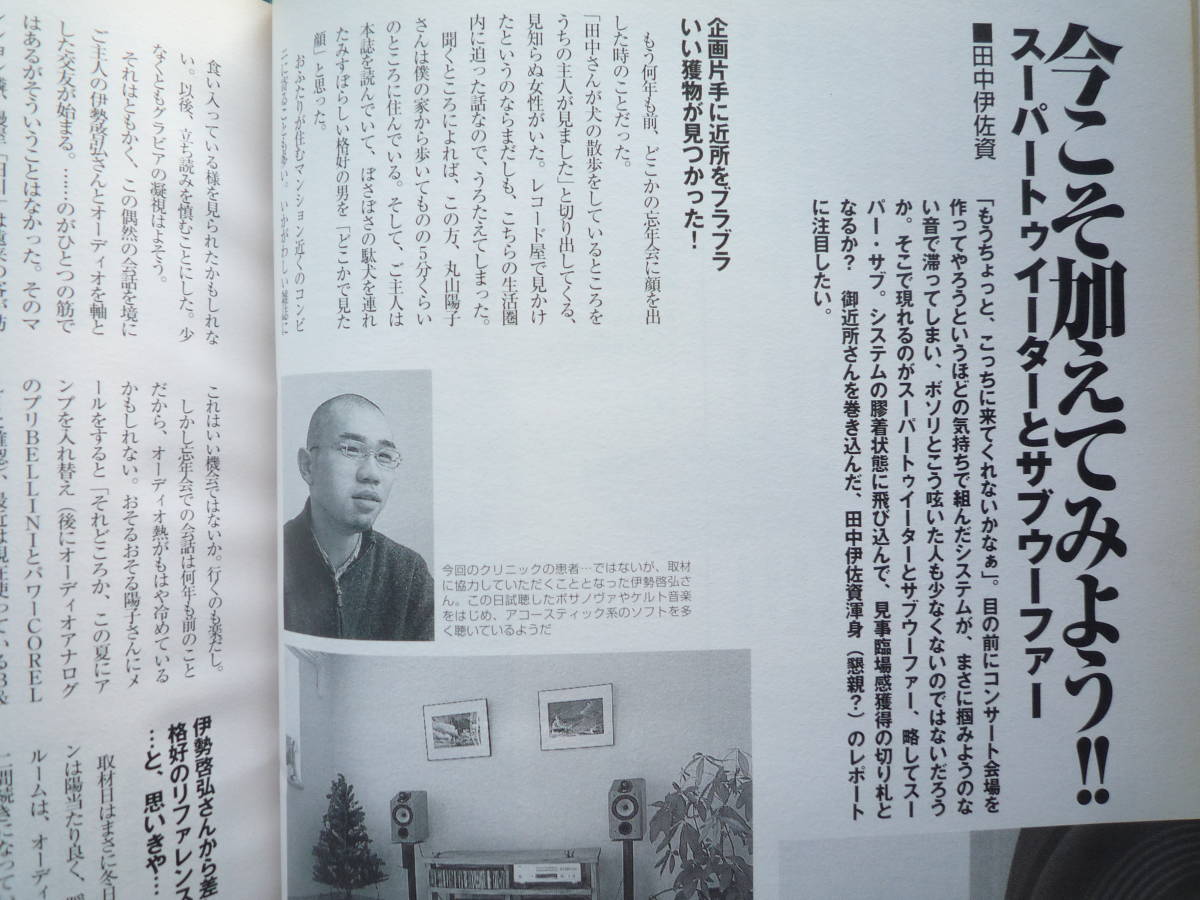 今こそ加えてみよう!!
スーパートゥイーターとサブウーファー
■田中伊佐資
「もうちょっと、こっちに来てくれないかなぁ」。目の前にコンサート会場を
作ってやろうというほどの気持ちで組んだシステムが、まさに掴みようのな
い音で滞ってしまい、ボソリとこう呟いた人も少なくないのではないだろう
か。そこで現れるのがスーパートゥイーターとサブウーファー、略してスー
パー・サブ。システムの膠着状態に飛び込んで、見事臨場感獲得の切り札と
なるか? 御近所さんを巻き込んだ、田中伊佐資渾身(懇親?)のレポート
に注目したい。
企画片手に近所をブラブラ
いい獲物が見つかった!
もう何年も前、どこかの忘年会に顔を出
した時のことだった。
「田中さんが犬の散歩をしているところを
うちの主人が見ました」と切り出してくる、
見知らぬ女性がいた。レコード屋で見かけ
たというのならまだしも、こちらの生活圏
内に迫った話なので、うろたえてしまった。
聞くところによれば、この方、丸山陽子
さんは僕の家から歩いてものの5分くらい
のところに住んでいる。そして、ご主人は
本誌を読んでいて、ぼさぼさの駄犬を連れ
たみすぼらしい格好の男を「どこかで見た
顔」と思った。
おふたりが住むマンション近くのコンビ
今回のクリニックの患者…ではないが、取材
に協力していただくこととなった伊勢啓弘さ
ん。この日試聴したボサノヴァやケルト音楽
をはじめ、アコースティック系のソフトを多
く聴いているようだ
食い入っている様を見られたかもしれな
い。以後、立ち読みを慎むことにした。少
なくともグラビアの凝視はよそう。
それはともかく、この偶然の会話を境に
ご主人の伊勢啓弘さんとオーディオを軸と
した交友が始まる。……のがひとつの筋で
はあるがそういうことはなかった。そのマ
これはいい機会ではないか。行くのも楽だし。
しかし忘年会での会話は何年も前のこと
だから、オーディオ熱がもはや冷めている
かもしれない。おそるおそる陽子さんにメ
ールをすると「それどころか、この夏にア
ンプを入れ替え(後にオーディオアナログ
のプリBELLINIとパワーCOREL
伊勢啓弘さんから差
格好のリファレンス
…と、思いきや…
取材日はまさに冬日
ンは陽当たり良く、
ルームは、オーディ
二間続きになってい